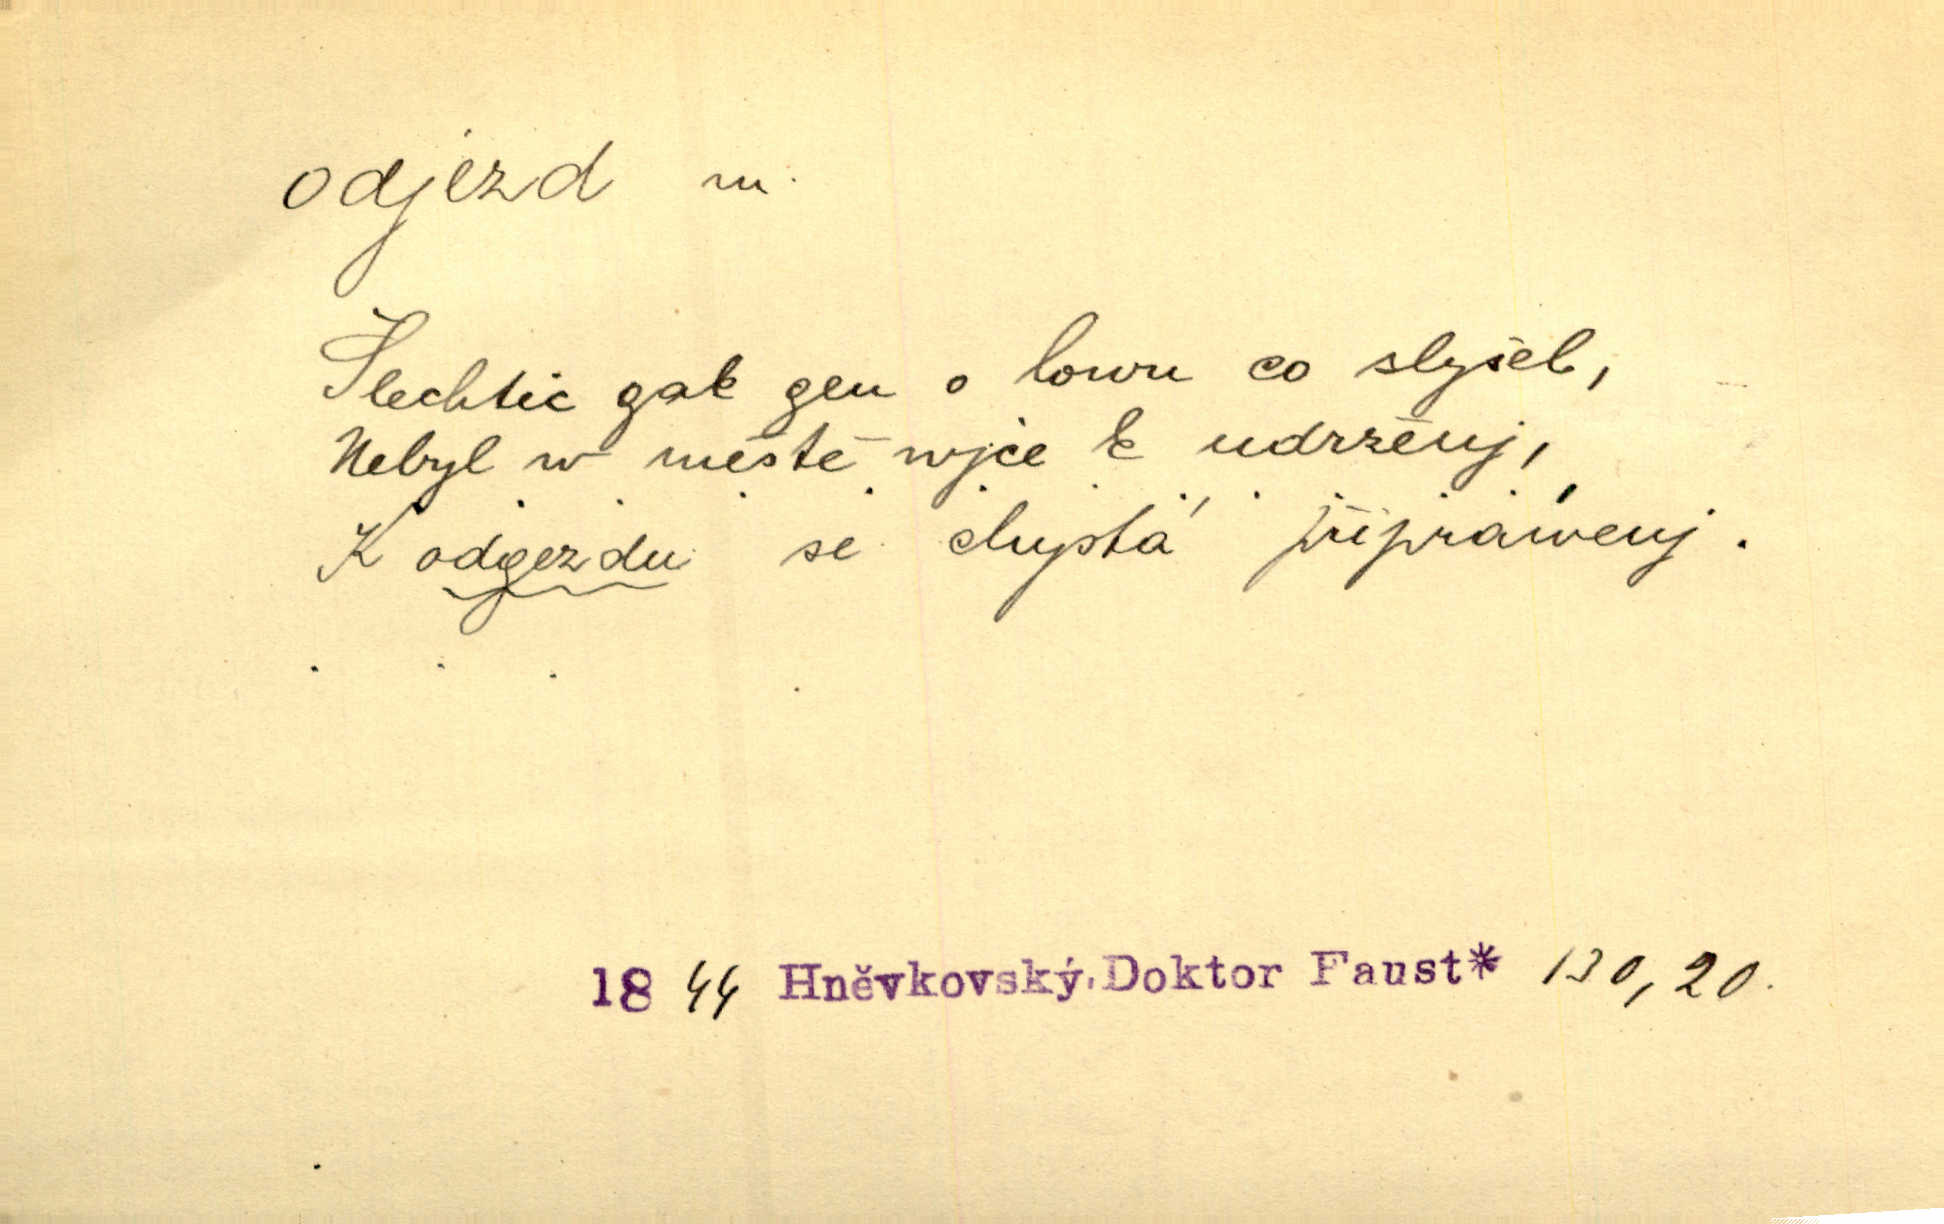 odjezd m.
Šlechtic gak gen o lowu co slyšel,
Nebyl w městě wjce k udrženj,
K odgezdu se chystá připrawenj.
18 44 Hněvkovský, Doktor Faust* 130, 20.